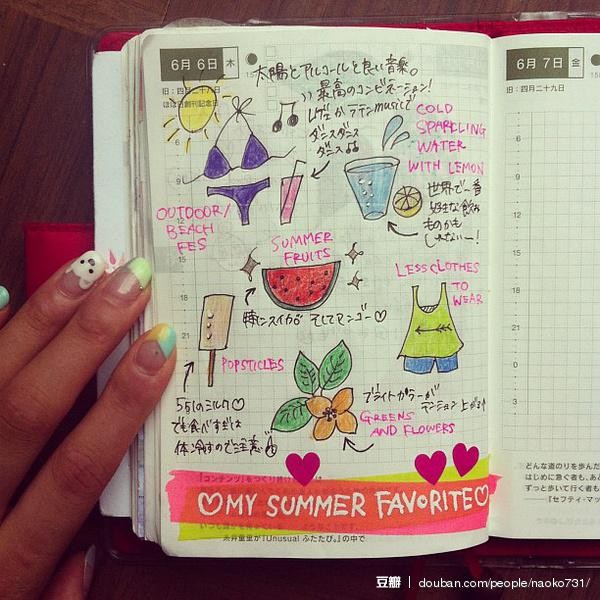 6月 6日 木
旧:四月二十八日
ほぼ日創刊記念日
太陽とアルコールと良い音楽。
最高のコンビネーション!
レゲエかラテンmusicで
ダンスダンス
ダンス
COLD
SPARKLING
WATER
WITH LEMON
世界で一番
好きな飲み
ものかも
しれないー!
OUTDOOR/
BEACH
FES
SUMMER
FRUITS
特にスイカが そしてマンゴー♡
LESS CLOTHES
TO
WEAR
POPSTICLES
551のミルク♡
でも食べすぎは
体冷すので注意
ブライトカラーが
テンション上がる
GREENS
AND FLOWERS
♡MY SUMMER FAVORITE♡
糸井重里が『Unusual ふたたび。』の中で
6
9
12
15
18
21
6月 7日 金
旧:四月二十九日
6
9
12
15
18
21
0
3
どんな道のりを歩んだ
はじめに急ぐ者も、あ
ずっと歩いて行く者も
『セフティ・マッ
豆瓣 | douban.com/people/naoko731/